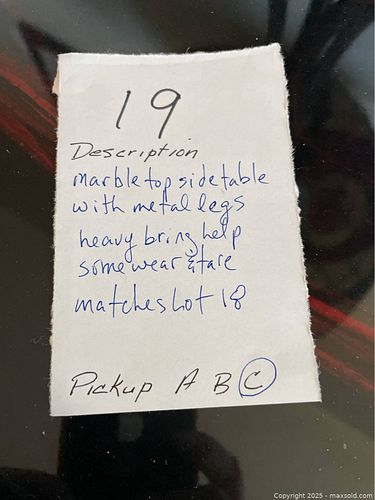 19
Description
marble top side table
with metal legs
heavy bring help
some wear & tare
matches Lot 18
Pickup A B C
Copyright 2025 - maxsold.com